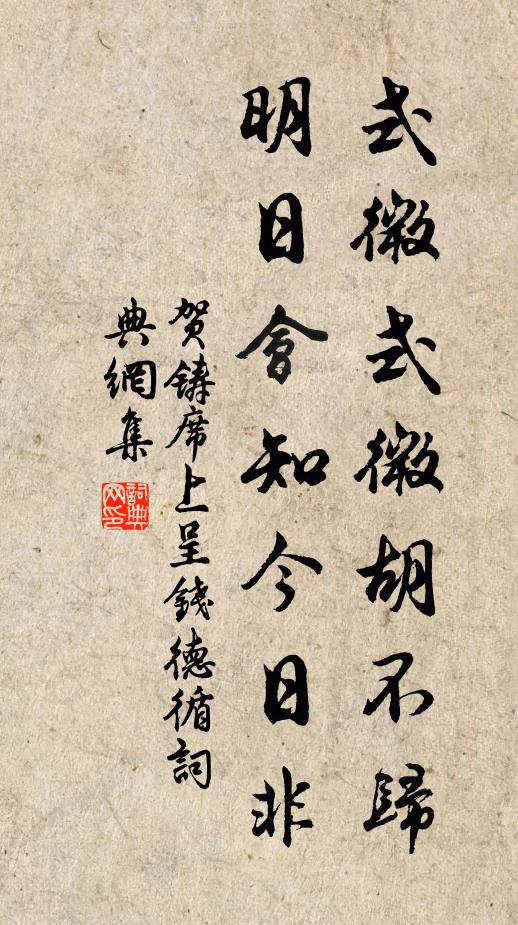 式微式微胡不歸
明日會知今日非
賀鑄席上呈錢德循詞
典網集
詞典网印